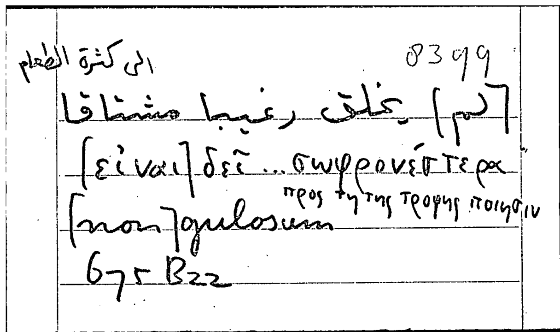 الى كثرة الطعام
8399
[لم] يخلق رغيبا مشتاقا
[εἶναι] δεῖ ... σωφρονέστερα
προς τη της τροφης ποιησιν
[non] gulosum
675 B22